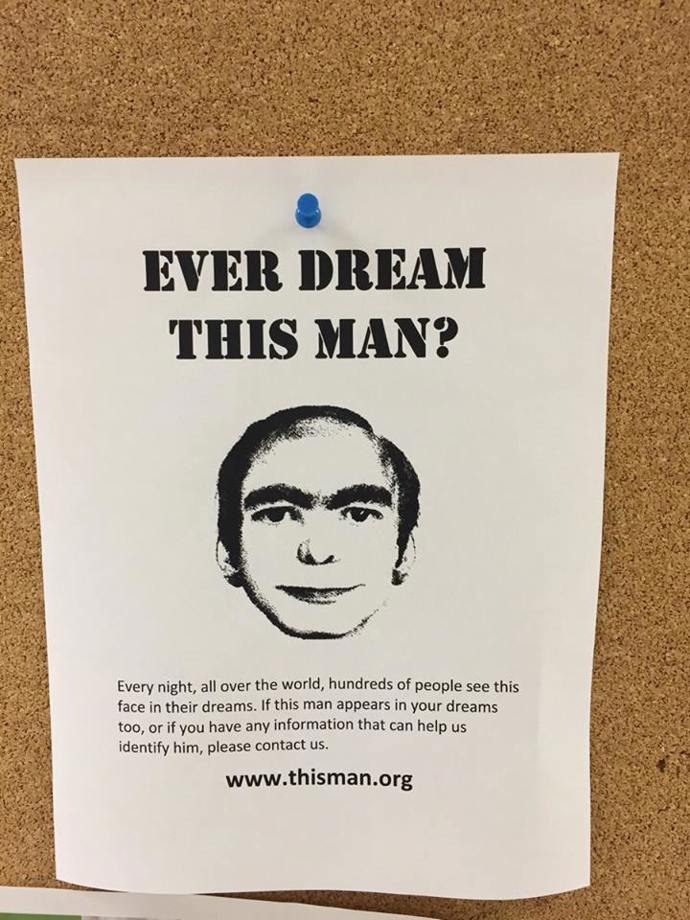 EVER DREAM
THIS MAN?
Every night, all over the world, hundreds of people see this
face in their dreams. If this man appears in your dreams
too, or if you have any information that can help us
identify him, please contact us.
www.thisman.org